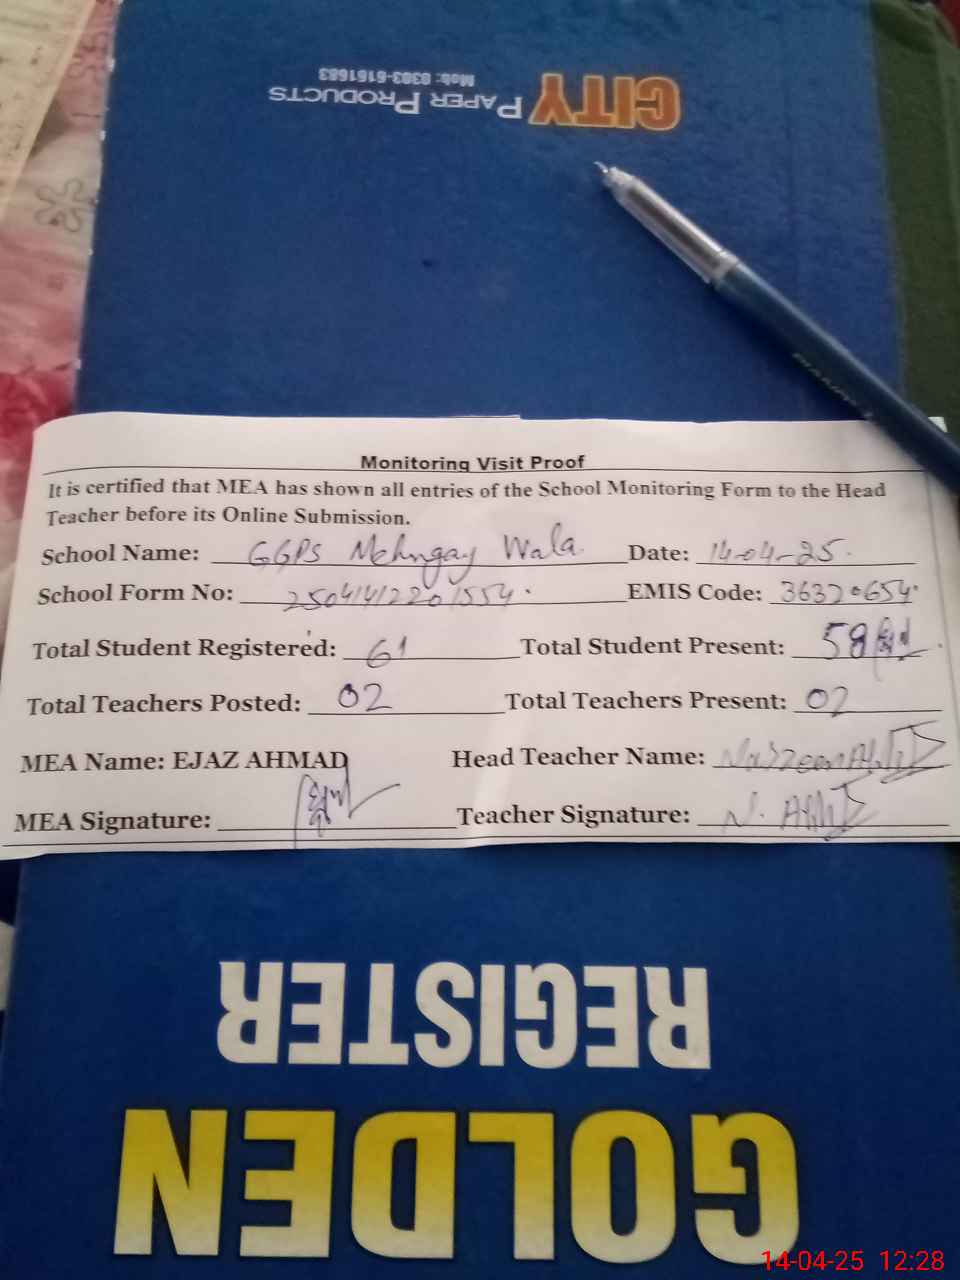 CITY PAPER PRODUCTS
Mob: 0303-6161683
Monitoring Visit Proof
It is certified that MEA has shown all entries of the School Monitoring Form to the Head
Teacher before its Online Submission.
School Name: GGPS Mehngay Wala Date: 14-04-25.
School Form No: EMIS Code: 36320654
Total Student Registered: 61 Total Student Present: 58
Total Teachers Posted: 02 Total Teachers Present: 02
MEA Name: EJAZ AHMAD Head Teacher Name:
MEA Signature: Teacher Signature: N.
REGISTER
GOLDEN
14-04-25 12:28